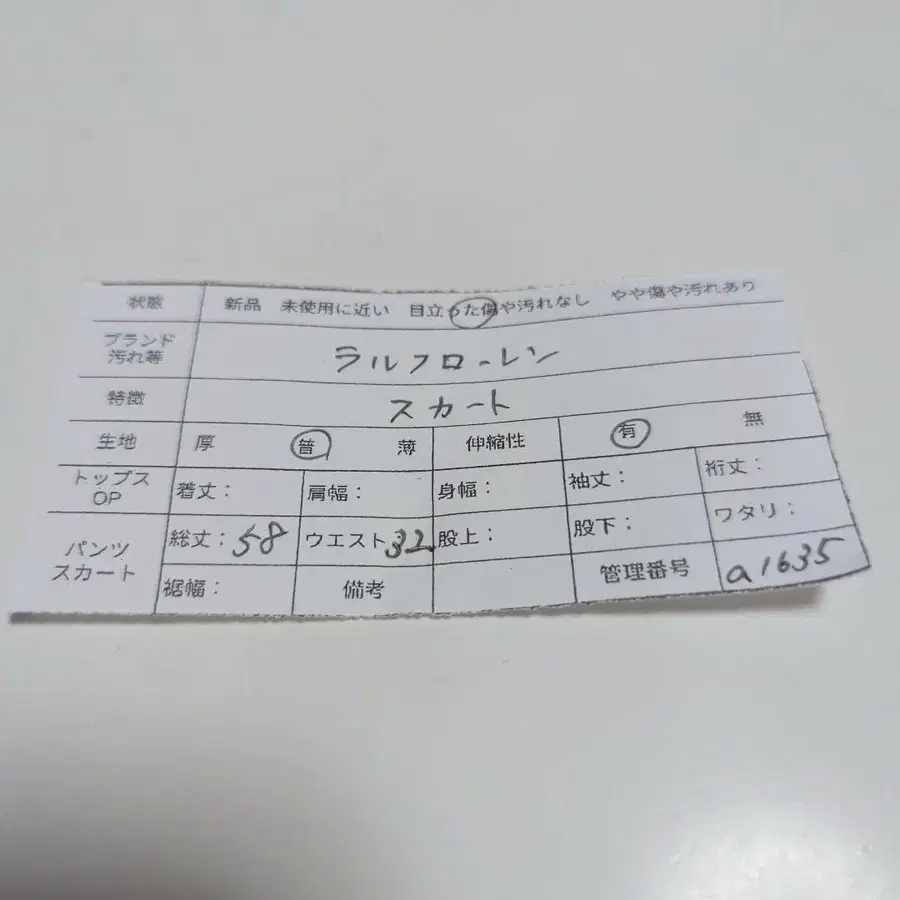 状態 新品 未使用に近い 目立った傷や汚れなし やや傷や汚れあり
ブランド
汚れ等 ラルフローレン
特徴 スカート
生地 厚 普 薄 伸縮性 有 無
トップス
OP 着丈： 肩幅： 身幅： 袖丈： 裄丈：
パンツ
スカート 総丈：58 ウエスト32 股上： 股下： ワタリ：
裾幅： 備考 管理番号 a1635